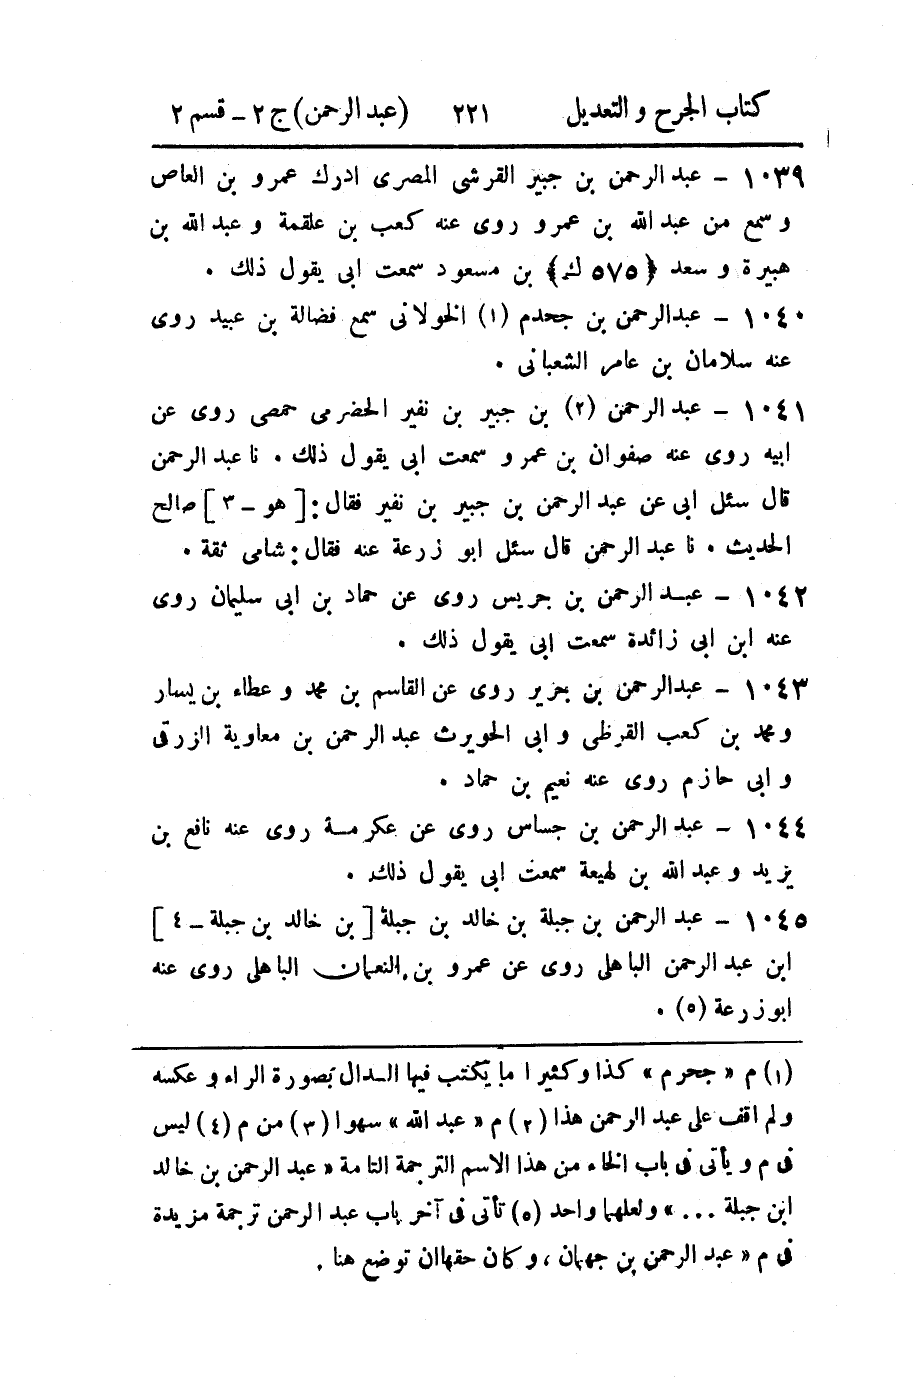 كتاب الجرح و التعديل ٢٢١ (عبد الرحمن) ج ٢ - قسم ٢
١٠٣٩ - عبد الرحمن بن جبير القرشى المصرى ادرك عمرو بن العاص
و سمع من عبد الله بن عمرو روى عنه كعب بن علقمة و عبد الله بن
هبيرة و سعد ﴿٥٧٥ ك﴾ بن مسعود سمعت ابى يقول ذلك .
١٠٤٠ - عبد الرحمن بن جحدم (١) الخولانى سمع فضالة بن عبيد روى
عنه سلامان بن عامر الشعبانى .
١٠٤١ - عبد الرحمن (٢) بن جبير بن نفير الحضرمى حمصى روى عن
ابيه روى عنه صفوان بن عمرو سمعت ابى يقول ذلك . نا عبد الرحمن
قال سئل ابى عن عبد الرحمن بن جبير بن نفير فقال: [هو - ٣] صالح
الحديث . نا عبد الرحمن قال سئل ابو زرعة عنه فقال: شامى ثقة .
١٠٤٢ - عبد الرحمن بن جريس روى عن حماد بن ابى سليمان روى
عنه ابن ابى زائدة سمعت ابى يقول ذلك .
١٠٤٣ - عبد الرحمن بن بحزير روى عن القاسم بن محمد و عطاء بن يسار
و محمد بن كعب القرظى و ابى الحويرث عبد الرحمن بن معاوية الزرقى
و ابى حازم روى عنه نعيم بن حماد .
١٠٤٤ - عبد الرحمن بن جساس روى عن عكرمة روى عنه نافع بن
يزيد و عبد الله بن لهيعة سمعت ابى يقول ذلك .
١٠٤٥ - عبد الرحمن بن جبلة بن خالد بن جبلة [بن خالد بن جبلة - ٤]
ابن عبد الرحمن الباهلى روى عن عمرو بن النعمان الباهلى روى عنه
ابو زرعة (٥) .
(١) م « جحرم » كذا وكثيرا ما يكتب فيها الدال بصورة الراء و عكسه
ولم اقف على عبد الرحمن هذا (٢) م « عبد الله » سهوا (٣) من م (٤) ليس
فى م و يأتى فى باب الخاء من هذا الاسم الترجمة التامة « عبد الرحمن بن خالد
ابن جبلة ... » ولعلهما واحد (٥) تأتى فى آخر باب عبد الرحمن ترجمة مزيدة
فى م « عبد الرحمن بن جهمان ، وكان حقها ان توضع هنا .